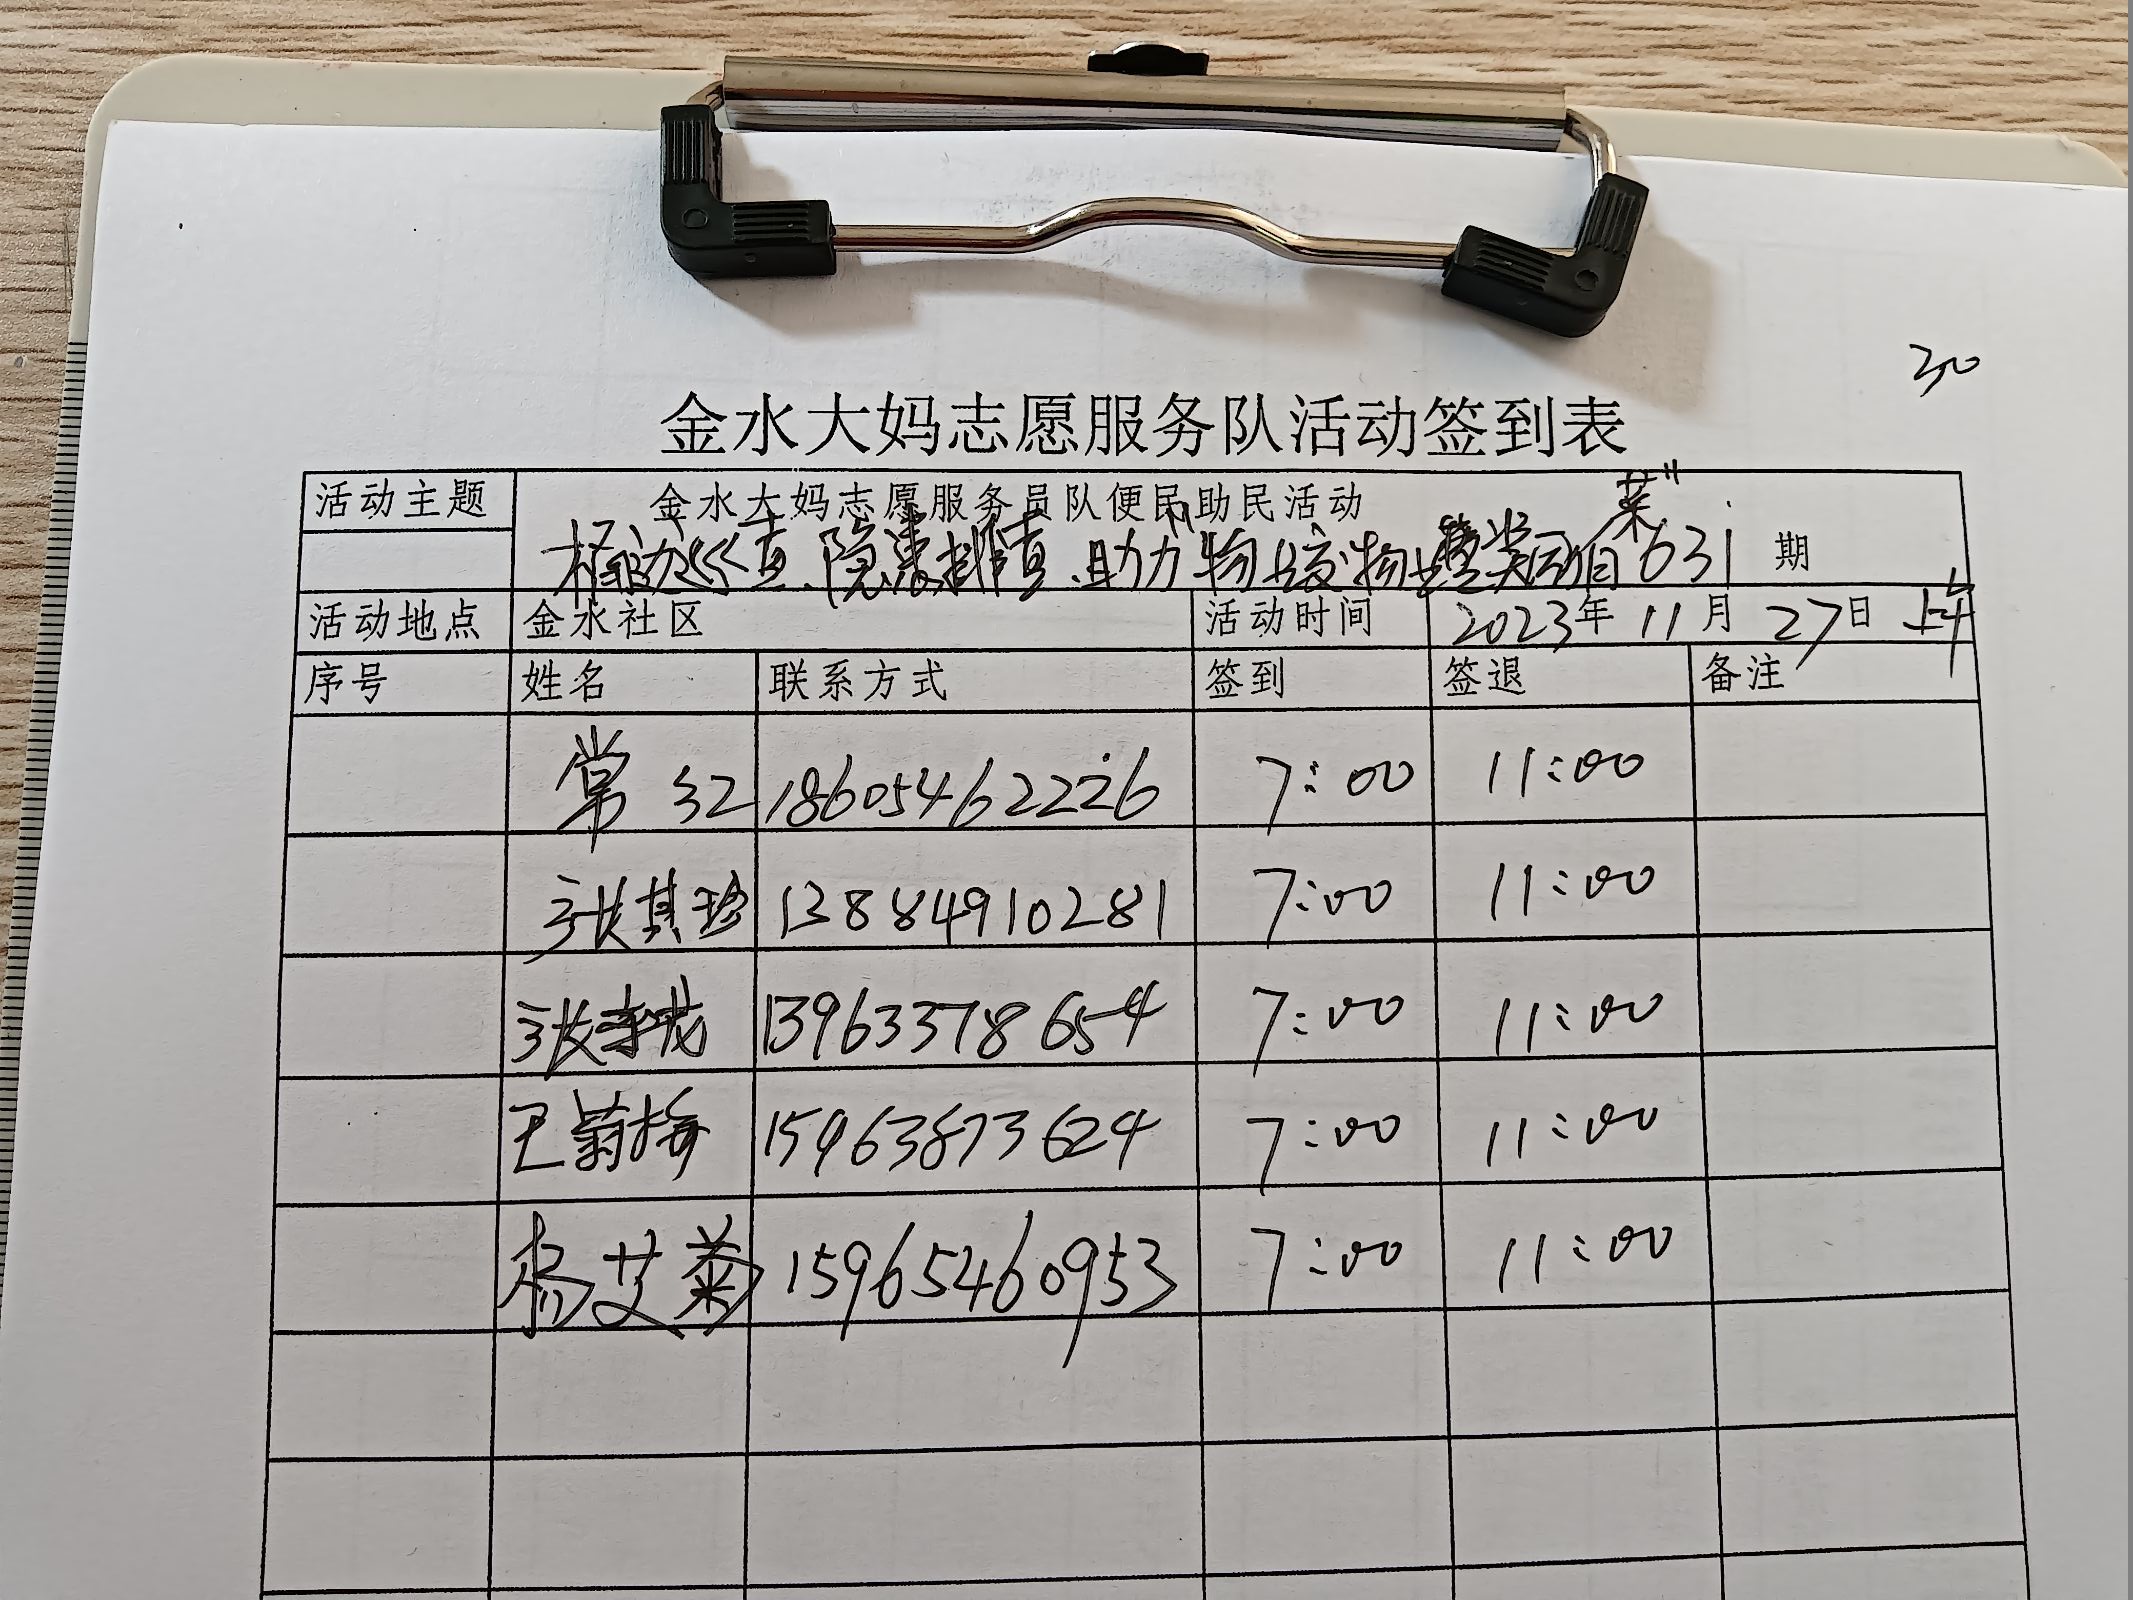 30
金水大妈志愿服务队活动签到表
活动主题 金水大妈志愿服务员队便民助民活动
巡查、隐患排查、助 631 期
活动地点 金水社区 活动时间 2023年 11月 27日 上午
序号 姓名 联系方式 签到 签退 备注
常红 18605462226 7:00 11:00
张其珍 13884910281 7:00 11:00
张 13963378654 7:00 11:00
王菊梅 15963873624 7:00 11:00
杨艾菊 15965460953 7:00 11:00